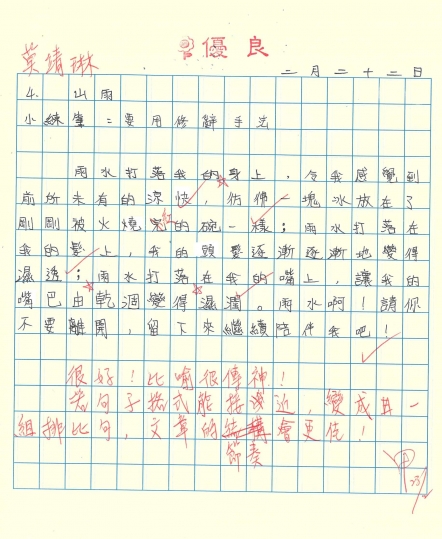 優良
葉靖琳
二月二十二日
4. 山雨
小練筆：要用修辭手法
雨水打落我的身上，令我感覺到
前所未有的涼快，彷彿一塊冰放在了
剛剛被火燒紅的碗一樣；雨水打落在
我的髮上，我的頭髮逐漸逐漸地變得
濕透；雨水打落在我的嘴上，讓我的
嘴巴由乾涸變得濕潤。雨水啊！請你
不要離開，留下來繼續陪伴我吧！
很好！比喻很傳神！
若句子格式能接近，變成其一
組排比句，文章的結構會更佳！
節奏
甲